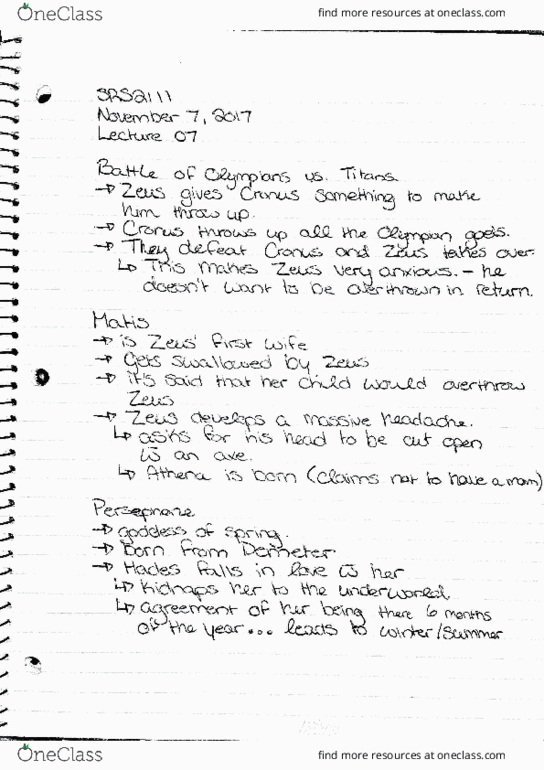 OneClass
find more resources at oneclass.com
SRS2111
November 7, 2017
Lecture 07
Battle of Olympians vs. Titans
→ Zeus gives Cronus something to make
him throw up.
→ Cronus throws up all the Olympian gods.
→ They defeat Cronus and Zeus takes over.
↳ This makes Zeus very anxious. – he
doesn't want to be overthrown in return.
Matis
→ is Zeus' first wife
→ gets swallowed by Zeus
→ it's said that her child would overthrow
Zeus
→ Zeus develops a massive headache.
↳ asks for his head to be cut open
w̄ an axe.
↳ Athena is born (claims not to have a mom)
Persephone
→ goddess of spring.
→ Born from Demeter.
→ Hades falls in love w̄ her
↳ kidnaps her to the underworld
↳ agreement of her being there 6 months
of the year... leads to winter/summer
OneClass
find more resources at oneclass.com